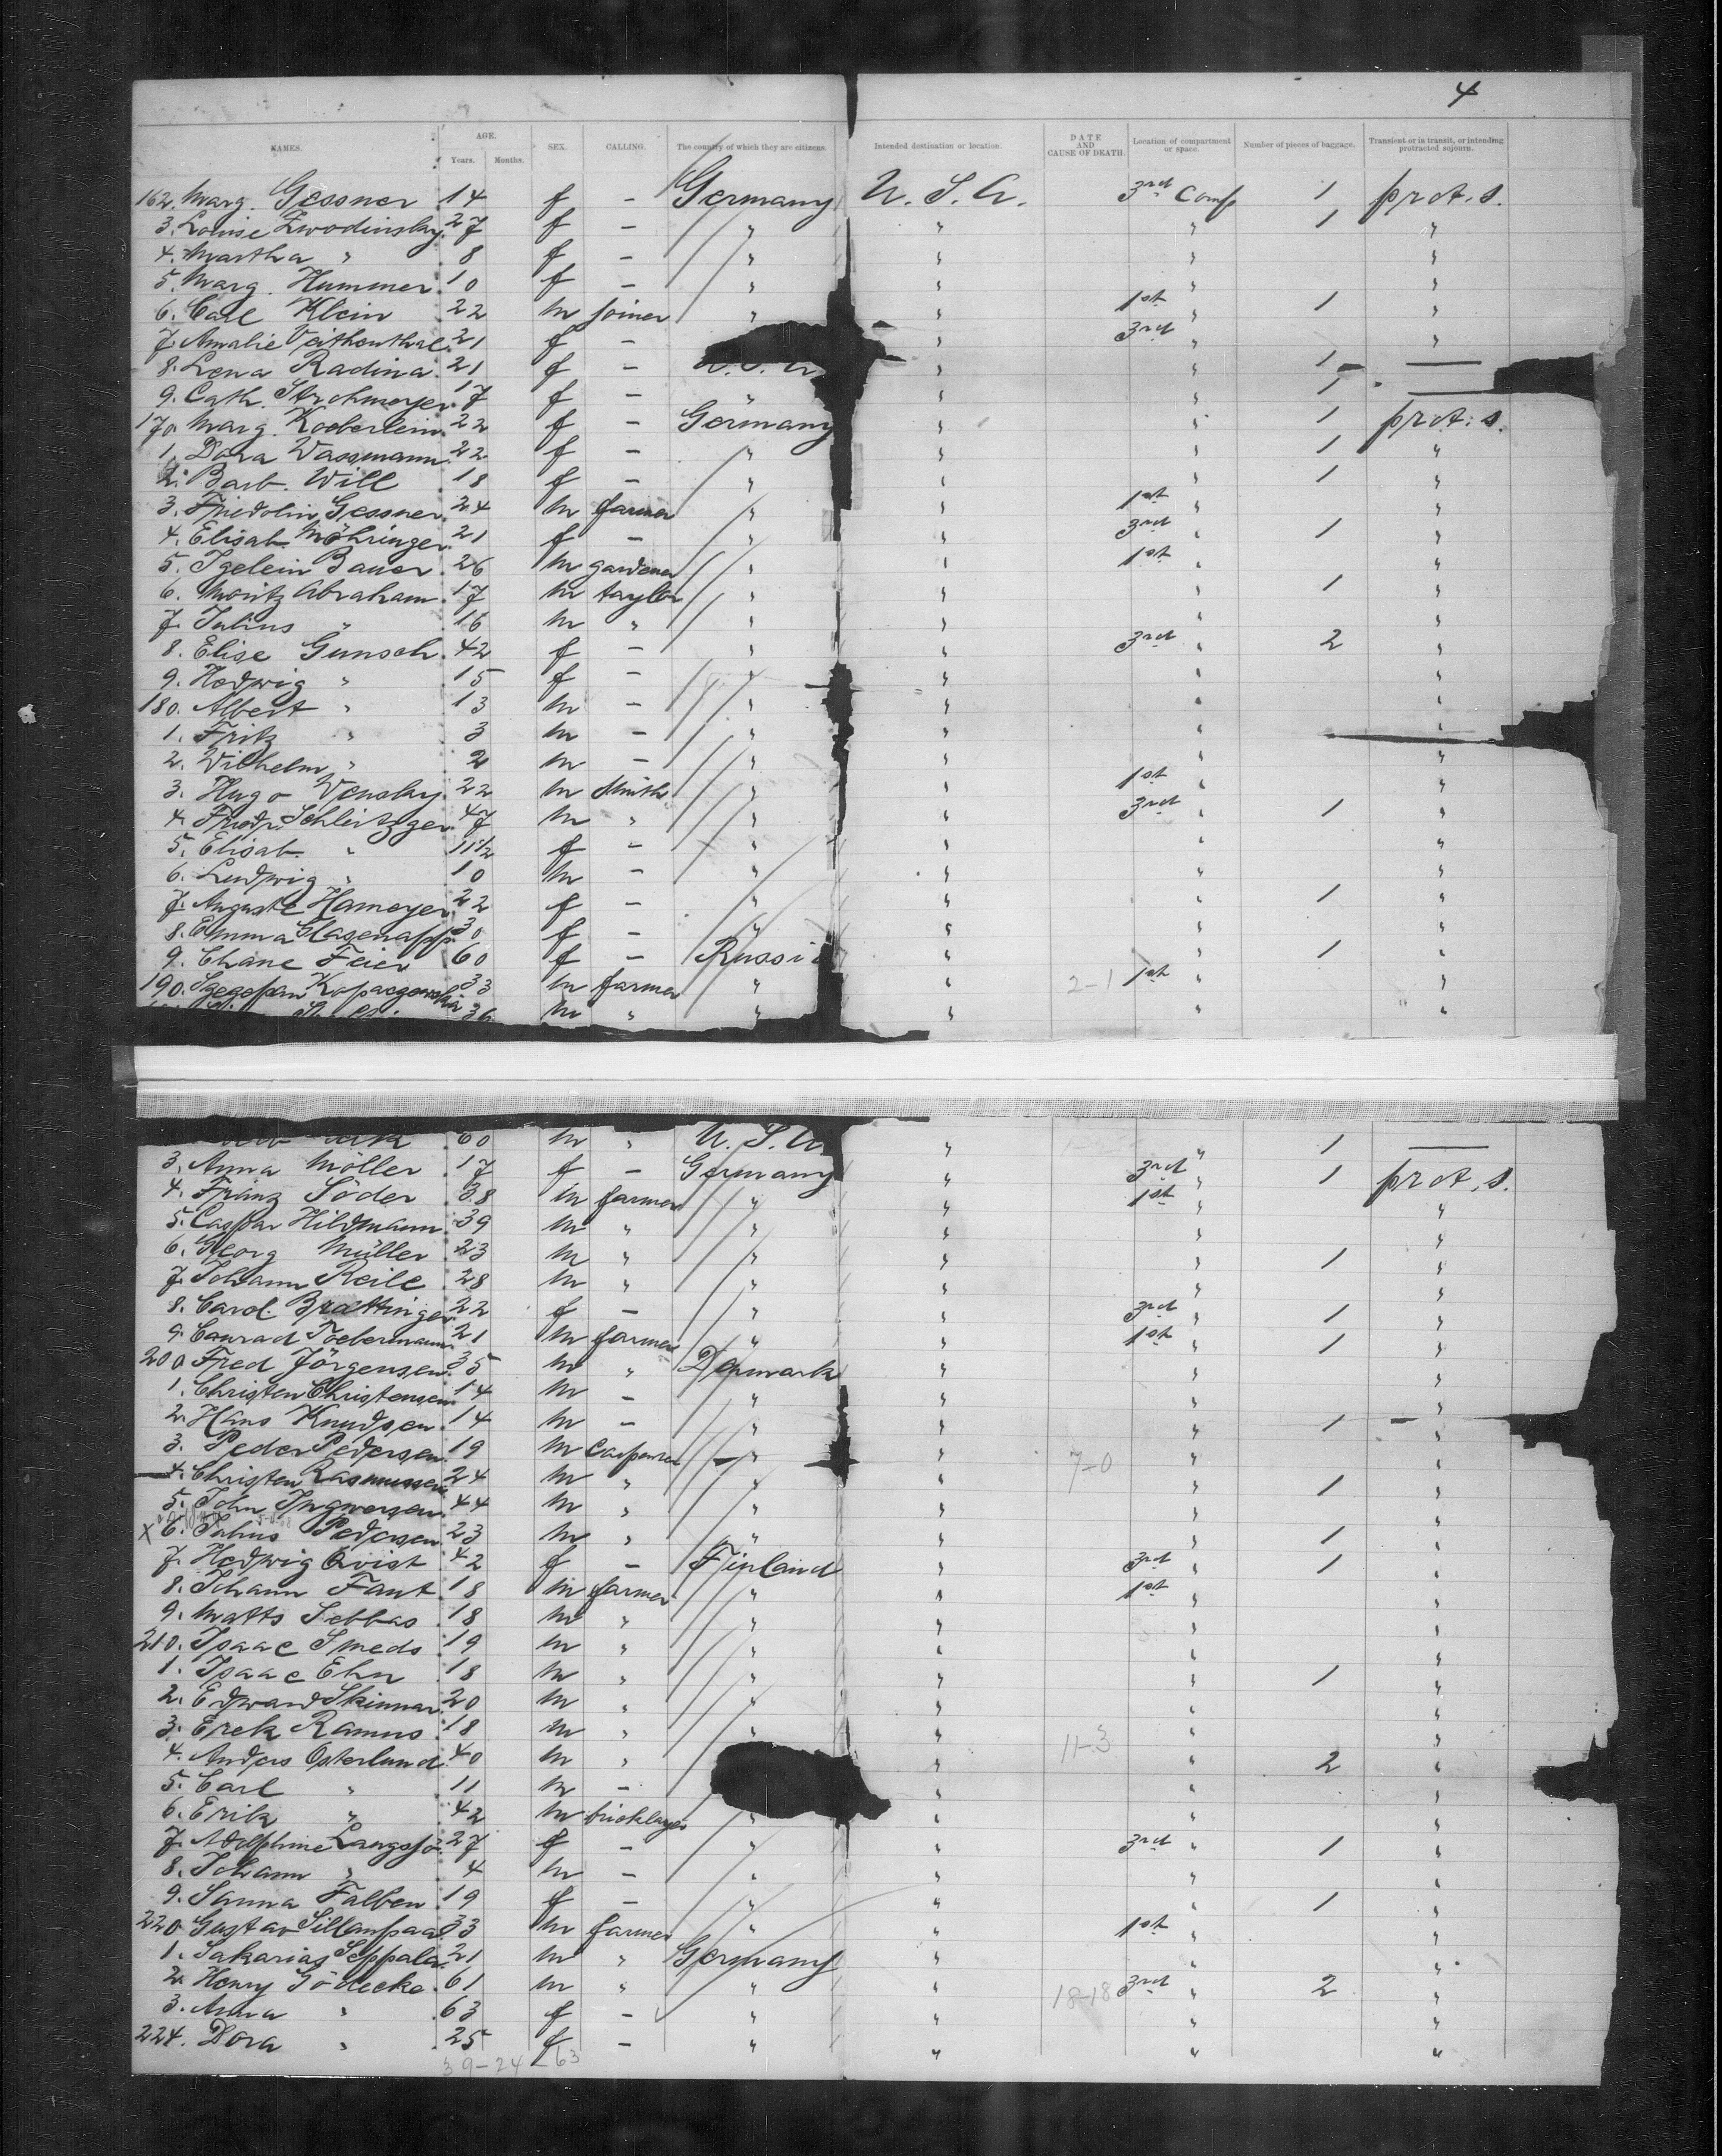 4
NAMES. AGE. Years. Months. SEX. CALLING. The country of which they are citizens. Intended destination or location. DATE AND CAUSE OF DEATH. Location of compartment or space. Number of pieces of baggage. Transient or in transit, or intending protracted sojourn.
162. Marg. Gessner 14 f — Germany U. S. A. 3rd Comp 1 prot. s.
3. Louise Zwodinsky 27 f — " " " 1 "
4. Martha " 8 f — " " " "
5. Marg. Hummer 10 f — " " " "
6. Carl Klein 22 m joiner " " 1st " 1 "
7. Amalie Veithenthal 21 f — " 3rd " "
8. Lena Radina 21 f — U. S. A. " " 1 —
9. Cath. Strohmeyer 17 f — " " " 1 —
170. Marg. Koeberlein 22 f — Germany " " 1 prot. s.
1. Dora Wassmann 22 f — " " " 1 "
2. Barb. Will 18 f — " " " 1 "
3. Fridolin Gessner 24 m farmer " " 1st " "
4. Elisab. Möhringer 21 f — " " 3rd " 1 "
5. Igelein Bauer 26 m gardener " " 1st " "
6. Moritz Abraham 17 m taylor " " " 1 "
7. Julius " 16 m " " " " "
8. Elise Gunsch 42 f — " " 3rd " 2 "
9. Hedwig " 15 f — " " " "
180. Albert " 13 m — " " " "
1. Fritz " 3 m — " " " "
2. Wilhelm " 2 m — " " " "
3. Hugo Wensky 22 m Smith " " 1st " "
4. Friedr. Schleitzger 47 m " " " 3rd " 1 "
5. Elisab. " 11½ f — " " " "
6. Ludwig " 10 m — " " " "
7. Auguste Hameyer 22 f — " " " 1 "
8. Emma Glasenapp 30 f — " " " "
9. Chane Feier 60 f — Russia " " 1 "
190. Szczepan Kopaczewski 33 m farmer " " 2-1 1st " "
36 m " " " " "
60 m " U. S. A. " " 1 —
3. Anna Möller 17 f — Germany " 3rd " 1 prot. s.
4. Franz Söder 38 m farmer " " 1st " "
5. Caspar Hildmann 39 m " " " " "
6. Georg Müller 23 m " " " " 1 "
7. Johann Reile 28 m " " " " "
8. Carol. Brattinger 22 f — " " 3rd " 1 "
9. Conrad Toebermann 21 m farmer " " 1st " 1 "
200 Fred Jörgensen 35 m " Denmark " " "
1. Christen Christensen 14 m — " " " "
2. Hans Knudsen 14 m — " " " 1 "
3. Peder Pedersen 19 m Carpenter " " 7-0 " "
4. Christen Rasmussen 24 m " " " " 1 "
5. John Ingwersen 44 m " " " " "
X 6. Julius Pedersen 23 m " " " " 1 "
7. Hedwig Qvist 42 f — Finland " 3rd " 1 "
8. Johann Fant 18 m farmer " " 1st " "
9. Matts Sebbas 18 m " " " " "
210. Isaac Smeds 19 m " " " " "
1. Isaac Ehn 18 m " " " " 1 "
2. Edward Skinnar 20 m " " " " "
3. Erek Ramus 18 m " " " " "
4. Anders Osterlund 40 m " " 11-3 " 2 "
5. Carl " 11 m — " " "
6. Erik " 42 m bricklayer " " " "
7. Adolphine Langsjö 27 f — " " 3rd " 1 "
8. Johann " 4 m — " " " "
9. Sanna Falben 19 f — " " " 1 "
220 Gustav Sillanpaa 33 m farmer " " 1st " "
1. Sakarias Seppala 21 m " Germany " " "
2. Henry Gödecke 61 m " " " 18-18 3rd " 2 "
3. Anna " 63 f — " " " "
224. Dora " 25 f — " " " "
39-24-63